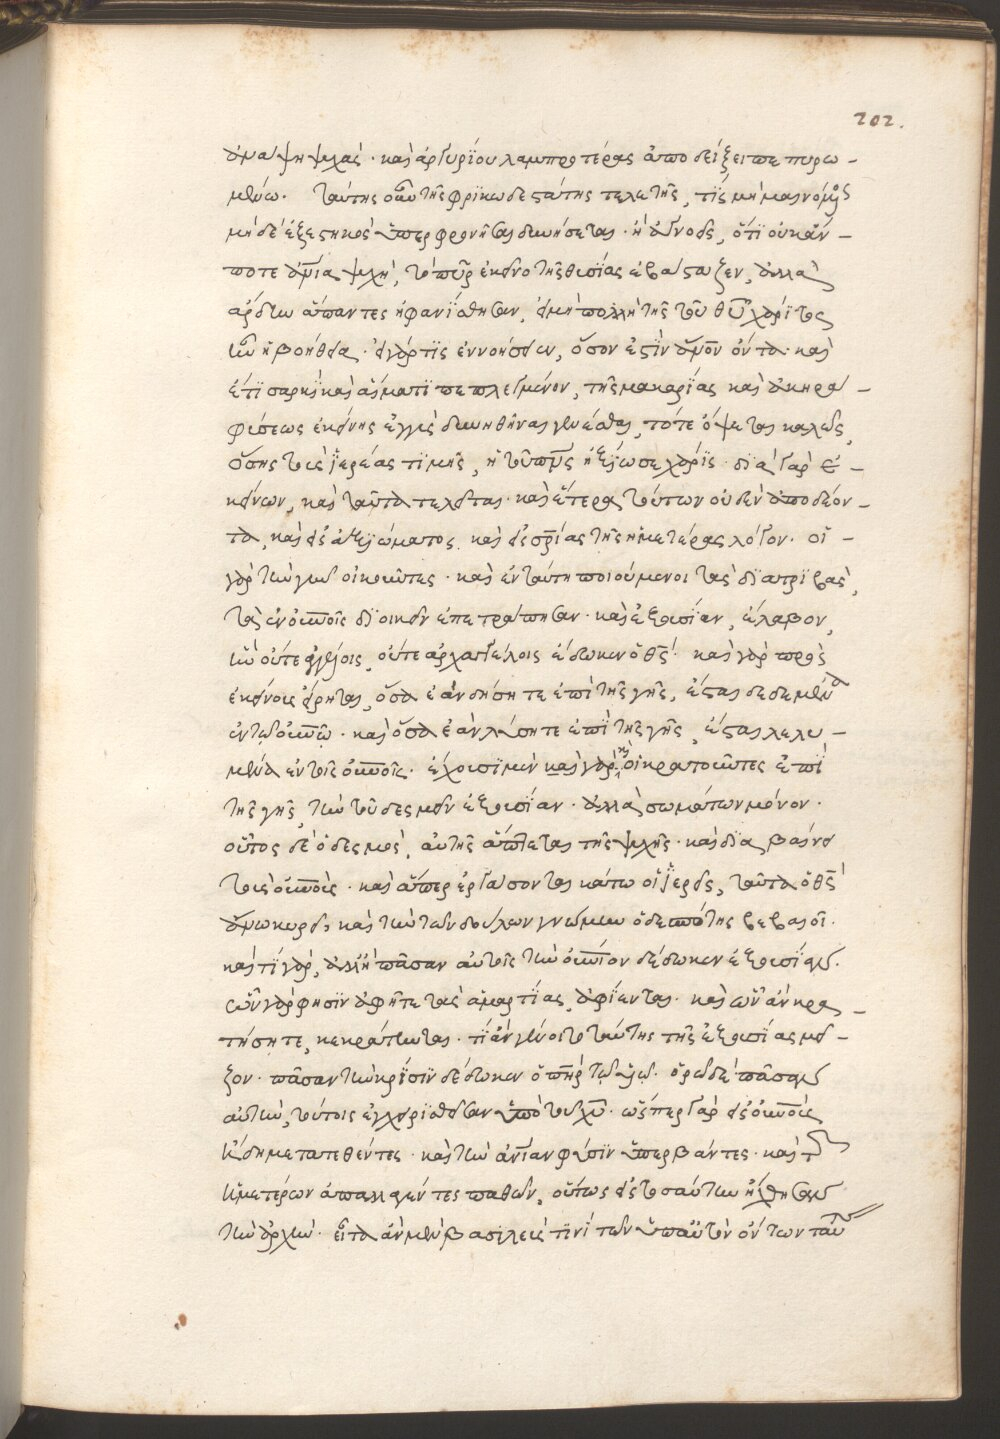 202.
ἀναψη ψυχὰς · καὶ ἀργυρίου λαμπροτέρας ἀποδείξει πεπυρω-
μένου. ταύτης οὖν τῆς φρικωδεστάτης τελετῆς, τίς μὴ μαινόμενος
μηδὲ ἐξεστηκὼς ὑπερφρονῆσαι δυνήσεται · ἢ ἀγνοεῖς, ὅτι οὐκ ἄν-
ποτε ἀνθρωπίνη ψυχὴ, τὸ πῦρ ἐκεῖνο τῆς θυσίας ἐβάσταξεν, ἀλλὰ
ἄρδην ἅπαντες ἠφανίσθησαν, εἰ μὴ πολλὴ τῆς τοῦ θυ χάριτος
ἦν ἡ βοήθεια · εἰ γάρ τις ἐννοήσειεν, ὅσον ἐστὶν ἄνον ὄντα · καὶ
ἔτι σαρκὶ καὶ αἵματι πεπλεγμένον, τῆς μακαρίας καὶ ἀκηρά-
φύσεως ἐκείνης ἐγγὺς δυνηθῆναι γενέσθαι, τότε ὄψεται καλῶς,
ὅσης τοὺς ἱερέας τιμῆς, ἡ τοῦ πνς ἠξίωσε χάρις · διὰ γὰρ ἐ-
κείνων, καὶ ταῦτα τελεῖται · καὶ ἕτερα τούτων οὐδὲν ἀποδέον-
τα, καὶ εἰς ἀξιώματος καὶ εἰς σριας τῆς ἡμετέρας λόγον · οἱ -
γὰρ τὴν γῆν οἰκοῦντες · καὶ ἐν ταύτῃ ποιούμενοι τὰς διατριβὰς,
τὰ ἐν οὐνοῖς διοικεῖν ἐπετράπησαν · καὶ ἐξουσίαν, ἔλαβον,
ἣν οὔτε ἀγγέλοις, οὔτε ἀρχαγγέλοις ἔδωκεν ὁ θς · καὶ γὰρ πρὸς
ἐκείνους εἴρηται, ὅσα ἐὰν δήσητε ἐπὶ τῆς γῆς, ἔσται δεδεμένα
ἐν τῷ οὐνῷ · καὶ ὅσα ἐὰν λύσητε ἐπὶ τῆς γῆς, ἔσται λελυ-
μένα ἐν τοῖς οὐνοῖς · ἔχουσι μὲν καὶ γὰρ καὶ οἱ κρατοῦντες ἐπὶ
τῆς γῆς, τὴν τοῦ δεσμεῖν ἐξουσίαν · ἀλλὰ σωμάτων μόνον ·
οὗτος δὲ ὁ δεσμὸς, αὐτῆς ἅπτεται τῆς ψυχῆς · καὶ διαβαίνει
τοὺς οὐνοὺς · καὶ ἅπερ ἐργάσονται κάτω οἱ ἱερεῖς, ταῦτα ὁ θς
ἄνω κυροῖ, καὶ τὴν τῶν δούλων γνώμην ὁ δεσπότης βεβαιοῖ.
καὶ τί γὰρ, ἀλλ' ἢ πᾶσαν αὐτοῖς τὴν οὐνιον δέδωκεν ἐξουσίαν.
ὧν γὰρ φησὶν ἀφῆτε τὰς ἁμαρτίας, ἀφίενται · καὶ ὧν ἂν κρα-
τήσητε, κεκράτηνται · τί ἂν γένοιτο ταύτης τῆς ἐξουσίας μεῖ-
ζον · πᾶσαν τὴν κρίσιν δέδωκεν ὁ πηρ τῷ υἱῷ. ὁρῶ δὲ πᾶσαν
αὐτὴν, τούτοις ἐγχειρισθεῖσαν ὑπὸ τοῦ χυ · ὥσπερ γὰρ εἰς οὐνοὺς
ἤδη μετατεθέντες · καὶ τὴν ἀνιαν φύσιν ὑπερβάντες · καὶ τῶν
ἡμετέρων ἀπαλλαγέντες παθῶν, οὕτως εἰς τοσαύτην ἤχθησαν
τὴν ἀρχήν · εἶτα ἂν μὲν βασιλεὺς τινὶ τῶν ὑπ' αὐτὸν ὄντων ταύ